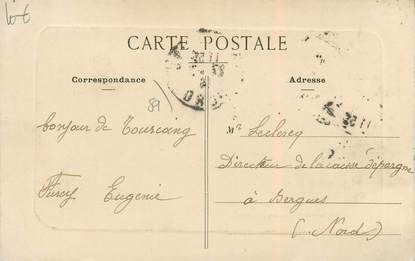 10 €
CARTE POSTALE
Correspondance
Adresse
59
bonjour de Tourcoing
Fircy Eugenie
Mr Leclercq
Directeur de la caisse d'epargne
à Bergues
(Nord)